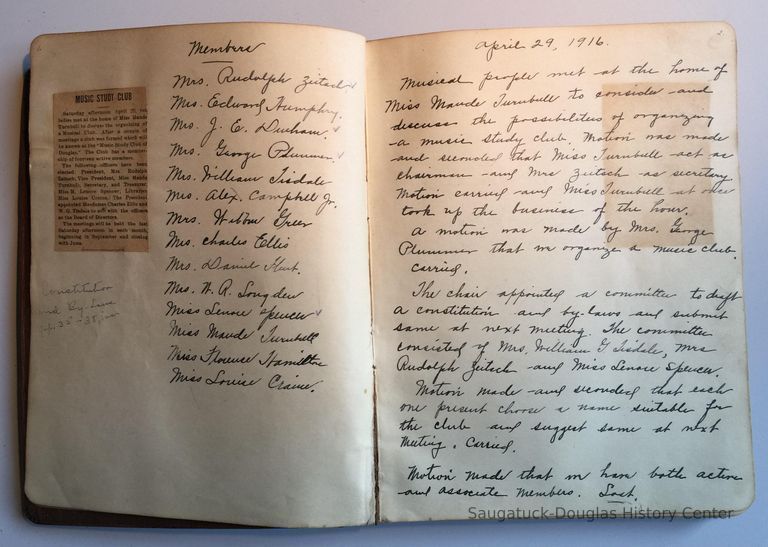 Members
MUSIC STUDY CLUB
Saturday afternoon April 29, ten
ladies met at the home of Miss Maude
Turnbull to discuss the organizing of
a Musical Club. After a couple of
meetings a club was formed which will
be known as the "Music Study Club of
Douglas." The Club has a mem-
bership of fourteen active members.
The following officers have been
elected: President, Mrs. Rudolph
Zeitsch, Vice President, Miss Maude
Turnbull, Secretary, and Treasurer,
Miss M. Lenore Spencer, Librarian,
Miss Louise Craine. The President
appointed Mesdames Charles Ellis and
W. G. Tisdale to act with the officers
as the Board of Directors.
The meetings will be held the last
Saturday afternoon in each month,
beginning in September and closing
with June.
Constitution
and By-Laws
Mrs. Rudolph Zeitsch
Mrs. Edward Humphrey.
Mrs. J. E. Durham.
Mrs. George Plummer.
Mrs. William Tisdale
Mrs. Alex. Campbell Jr.
Mrs. Webber Greer
Mrs. Charles Ellis
Mrs. Daniel
Mrs. W. R. Longden
Miss Lenore Spencer
Miss Maude Turnbull
Miss Florence Hamilton
Miss Louise Craine.
2
April 29, 1916.
Musical people met at the home of
Miss Maude Turnbull to consider and
discuss the possibilities of organizing
a music study club. Motion was made
and seconded that Miss Turnbull act as
chairman and Mrs Zeitsch as secretary.
Motion carried and Miss Turnbull at once
took up the business of the hour.
A motion was made by Mrs. George
Plummer that we organize a music club.
Carried.
The chair appointed a committee to draft
a constitution and by-laws and submit
same at next meeting. The committee
consisted of Mrs. William G Tisdale, Mrs
Rudolph Zeitsch and Miss Lenore Spencer.
Motion made and seconded that each
one present choose a name suitable for
the club and suggest same at next
meeting. Carried.
Motion made that we have both active
and associate members. Lost.
Saugatuck-Douglas History Center